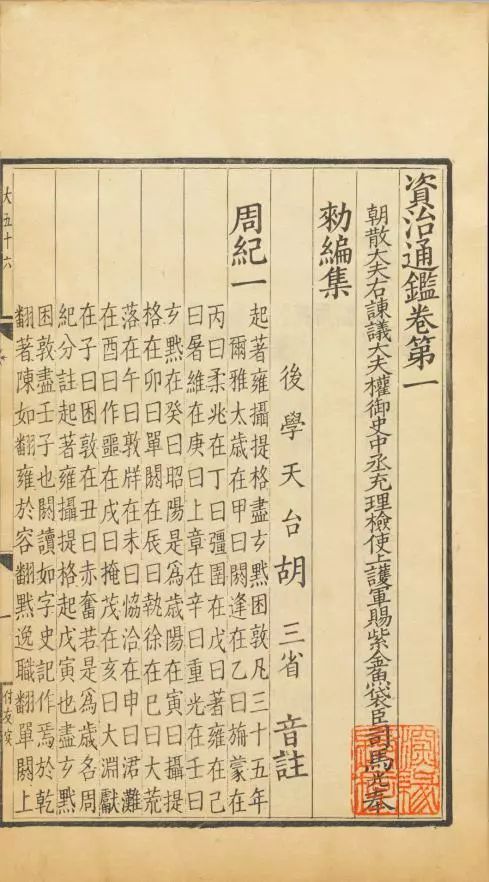 資治通鑑卷第一
朝散大夫右諫議大夫權御史中丞充理檢使上護軍賜紫金魚袋臣司馬光奉
勑編集
後學天台胡三省音註
周紀一
起著雍攝提格盡玄黓困敦凡三十五年
爾雅太歲在甲曰閼逢在乙曰旃蒙在
丙曰柔兆在丁曰彊圉在戊曰著雍在己
曰屠維在庚曰上章在辛曰重光在壬曰
玄黓在癸曰昭陽是爲歲陽在寅曰攝提
格在卯曰單閼在辰曰執徐在巳曰大荒
落在午曰敦牂在未曰協洽在申曰涒灘
在酉曰作噩在戌曰掩茂在亥曰大淵獻
在子曰困敦在丑曰赤奮若是爲歲名周
紀分註起著雍攝提格起戊寅也盡玄黓
困敦盡壬子也閼讀如字史記作焉於乾
翻著陳如翻雍於容翻黓逸職翻單閼上
大五十六
一